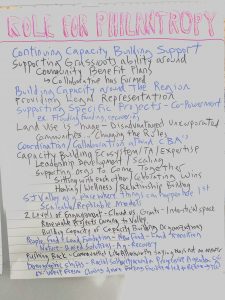 ROLE FOR PHILANTROPY
Continuing Capacity Building Support
Supporting Grassroots ability around
Community Benefit Plans
↳ Collaborative has Formed
Building Capacity around The Region
Providing Legal Representation
Supporting Specific Projects - Co-Government
ex. Flooding Funding, recovering
Land Use is huge - Disadvantaged Unincorporated
Communities - Changing the Rules
Coordination/Collaboration around CBA's
Capacity Building Ecosystem/TA/Expertise
Leadership Development / Scaling
Supporting Orgs to Come Together,
Sitting with each other/Celebrating Wins
Healing/Wellness/Relationship Building
SJ Valley as Place where Things can happen 1st
Scaleable/Replicable Models
2 Levels of Engagement - Cloud vs. Ground - Intentional space
Renewable Projects Coming to Valley
Building Capacity of Capacity Building Organizations
People, Food & Land Foundation - New Fund - Land Transition
Nature-Based Solutions - Ag - Recovery
Pushing Back -